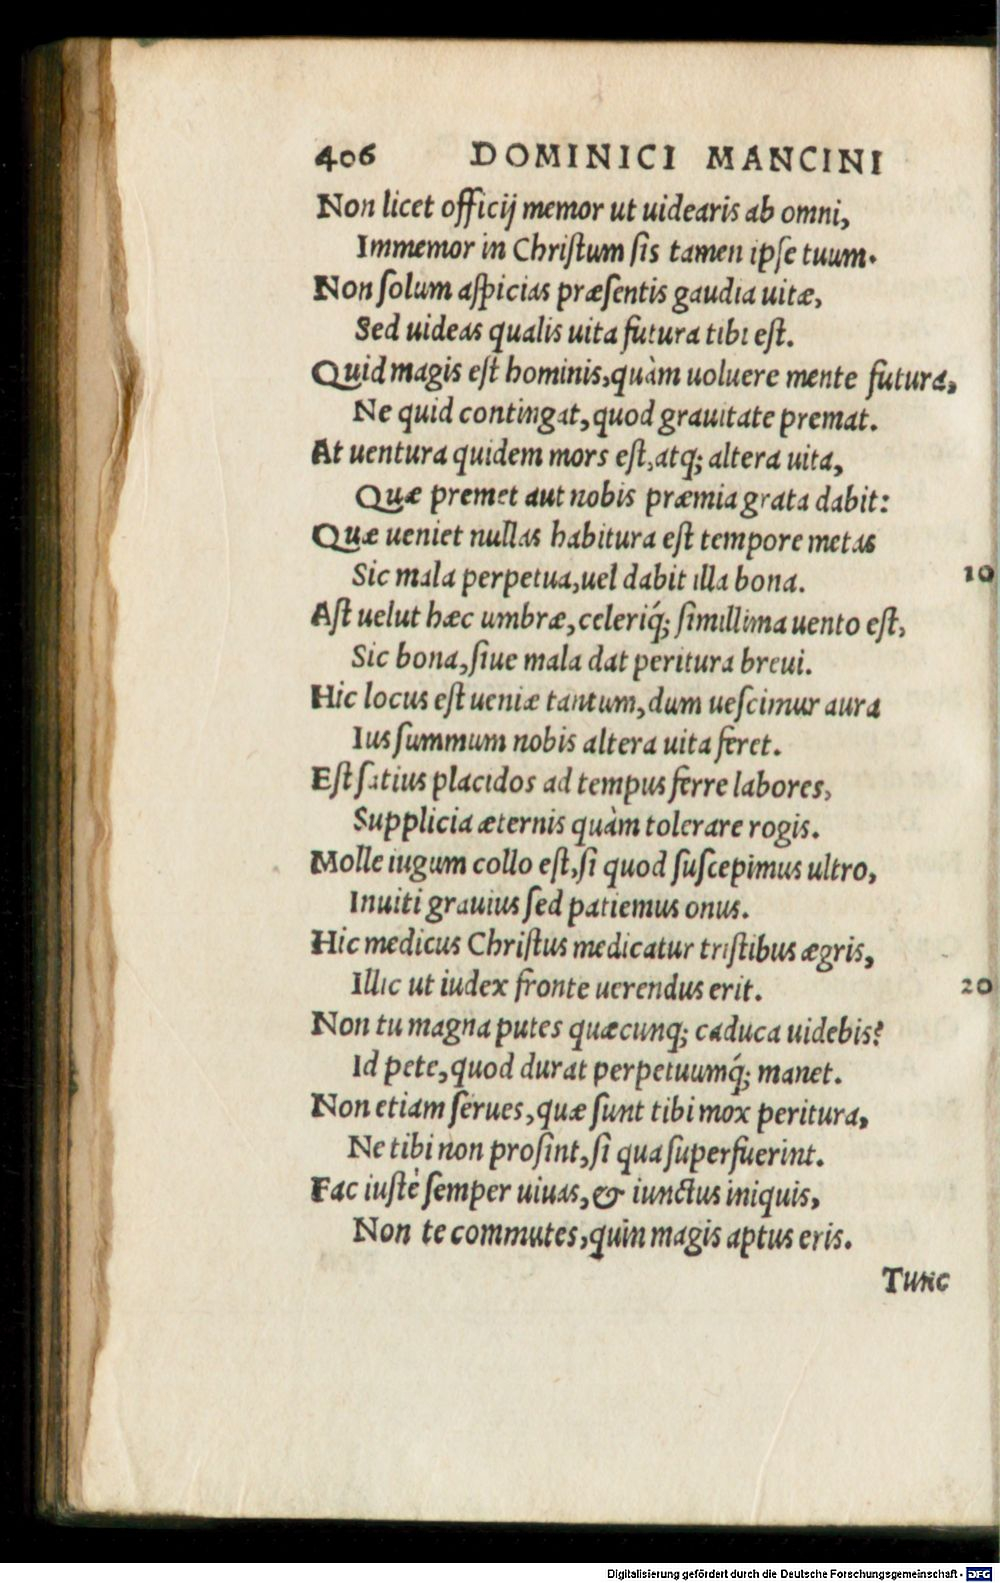 406 DOMINICI MANCINI
Non licet officij memor ut uidearis ab omni,
Immemor in Chriſtum ſis tamen ipſe tuum.
Non ſolum aſpicias præſentis gaudia uitæ,
Sed uideas qualis uita futura tibi eſt.
Quid magis eſt hominis, quàm uoluere mente futura,
Ne quid contingat, quod grauitate premat.
At uentura quidem mors eſt, atq; altera uita,
Quæ premet aut nobis præmia grata dabit:
Quæ ueniet nullas habitura eſt tempore metas
Sic mala perpetua, uel dabit illa bona. 10
Aſt uelut hæc umbræ, celeriq́; ſimillima uento eſt,
Sic bona, ſiue mala dat peritura breui.
Hic locus eſt ueniæ tantum, dum ueſcimur aura
Ius ſummum nobis altera uita feret.
Eſt ſatius placidos ad tempus ferre labores,
Supplicia æternis quàm tolerare rogis.
Molle iugum collo eſt, ſi quod ſuſcepimus ultro,
Inuiti grauius ſed patiemus onus.
Hic medicus Chriſtus medicatur triſtibus ægris,
Illic ut iudex fronte uerendus erit. 20
Non tu magna putes quæcunq; caduca uidebis?
Id pete, quod durat perpetuumq́; manet.
Non etiam ſerues, quæ ſunt tibi mox peritura,
Ne tibi non proſint, ſi qua ſuperfuerint.
Fac iuſtè ſemper uiuas, & iunctus iniquis,
Non te commutes, quin magis aptus eris.
Tunc
Digitalisierung gefördert durch die Deutsche Forschungsgemeinschaft - DFG